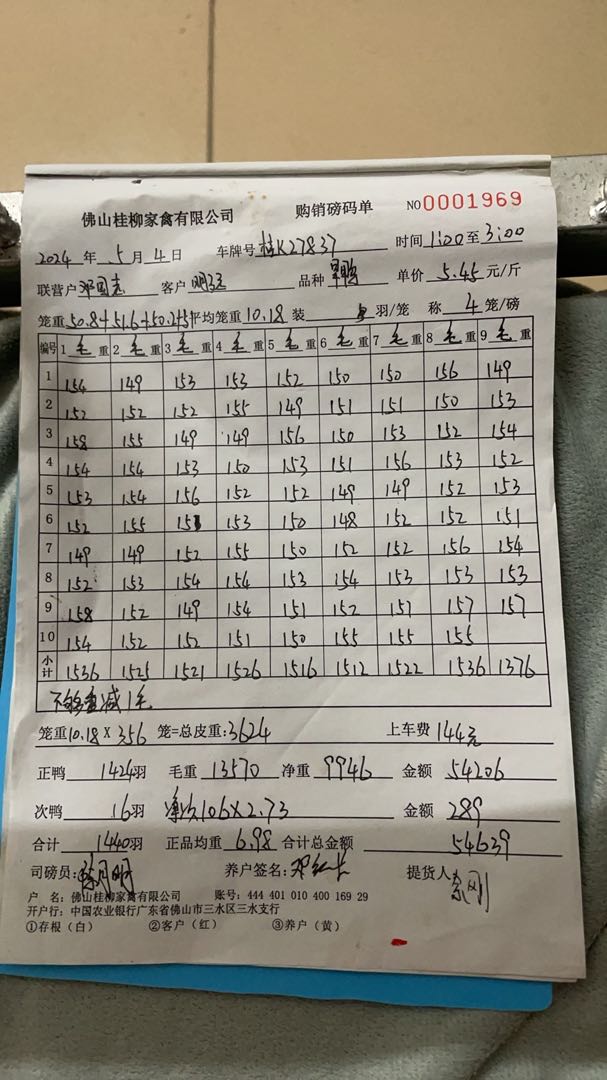 佛山桂柳家禽有限公司 购销磅码单 NO0001969
2024年5月4日 车牌号 桂K27837 时间 1:00至3:00
联营户 邓国志 客户 品种 单价 5.45元/斤
笼重 50.8+51.6+50.2+51 平均笼重 10.18 装 羽/笼 称 4 笼/磅
编号 1毛重 2毛重 3毛重 4毛重 5毛重 6毛重 7毛重 8毛重 9毛重
1 154 149 153 153 152 150 150 156 149
2 152 152 152 155 149 151 151 150 153
3 158 155 149 149 156 150 153 152 154
4 154 154 153 150 153 151 156 153 152
5 153 154 156 152 152 149 149 152 153
6 152 155 153 150 148 152 152 151
7 149 149 152 155 150 152 152 156 154
8 152 153 154 154 153 154 153 153 153
9 158 152 149 154 151 152 151 157 157
10 154 152 152 151 150 155 155 155
小计 1536 1525 1521 1526 1516 1512 1522 1536 1376
减1毛
笼重10.18×356 笼=总皮重:3624 上车费 144元
正鸭 1424羽 毛重 13570 净重 9946 金额 54206
次鸭 16羽 106×2.73 金额 289
合计 1440羽 正品均重 6.98 合计总金额 54639
司磅员: 养户签名: 提货人
户 名: 佛山桂柳家禽有限公司 账号: 444 401 010 400 169 29
开户行: 中国农业银行广东省佛山市三水区三水支行
①存根(白) ②客户(红) ③养户(黄)